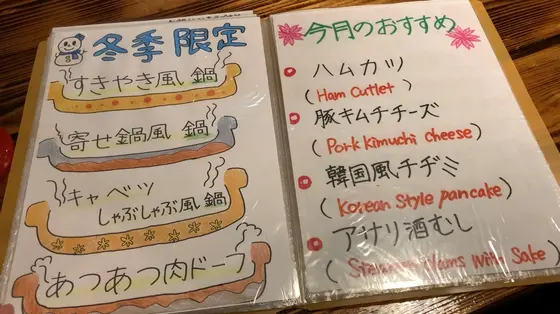 冬季限定
すきやき風鍋
寄せ鍋風 鍋
キャベツ
しゃぶしゃぶ風鍋
あつあつ肉ドーフ
今月のおすすめ
ハムカツ
(Ham Cutlet)
豚キムチチーズ
(Pork Kimuchi cheese)
韓国風チヂミ
(Korean Style pancake)
アサリ酒むし
With Sake)